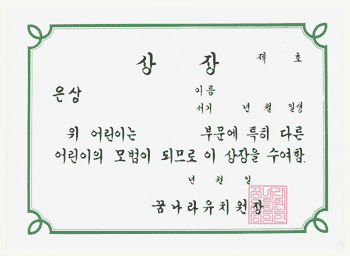 상 장
제 호
은상
이름
서기 년 월 일생
위 어린이는 부문에 특히 다른
어린이의 모범이 되므로 이 상장을 수여함.
년 월 일
꿈나라유치원장